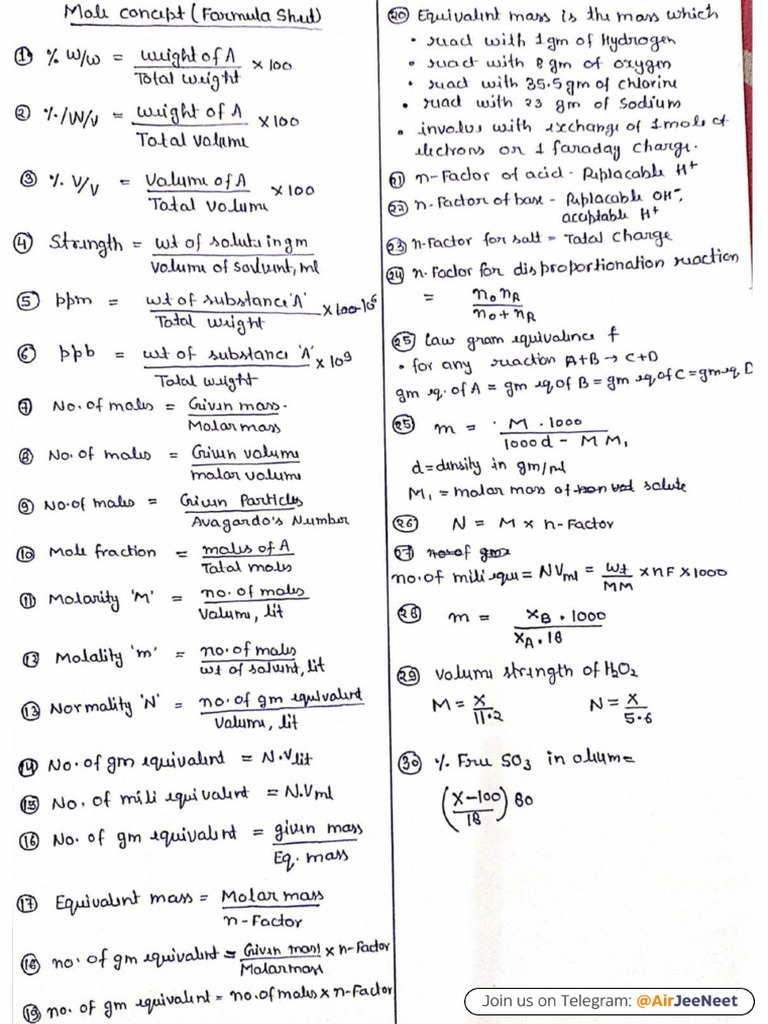 Mole concept (Formula Sheet)
① % w/w = weight of A / Total weight × 100
② %/W/v = weight of A / Total volume × 100
③ % V/V = Volume of A / Total volume × 100
④ Strength = wt of solute in gm / volume of solvent, ml
⑤ ppm = wt of substance 'A' / Total weight × 10⁶
⑥ ppb = wt of substance 'A' / Total weight × 10⁹
⑦ No. of moles = Given mass. / Molar mass
⑧ No. of moles = Given volume / molar volume
⑨ No. of moles = Given Particles / Avagardo's Number
⑩ Mole fraction = moles of A / Total moles
⑪ Molarity 'M' = no. of moles / Volume, lit
⑫ Molality 'm' = no. of moles / wt of solvent, lit
⑬ Normality 'N' = no. of gm equivalent / Volume, lit
⑭ No. of gm equivalent = N.Vlit
⑮ No. of mili equivalent = N.Vml
⑯ No. of gm equivalent = given mass / Eq. mass
⑰ Equivalent mass = Molar mass / n-Factor
⑱ no. of gm equivalent = Given mass / Molar mass × n-Factor
⑲ no. of gm equivalent = no. of moles × n-Factor
⑳ Equivalent mass is the mass which
• react with 1 gm of Hydrogen
• react with 8 gm of oxygen
• react with 35.5 gm of chlorine
• react with 23 gm of Sodium
• involve with exchange of 1 mole of
electrons or 1 faraday charge.
㉑ n-Factor of acid - Replacable H⁺
㉒ n-Factor of base - Replacable OH⁻,
acceptable H⁺
㉓ n-Factor for salt = Total charge
㉔ n-Factor for disproportionation reaction
= nₒ nR / nₒ + nR
㉕ law gram equivalence f
• for any reaction A+B → C+D
gm eq. of A = gm eq of B = gm eq of C = gm eq D
㉕ m = M . 1000 / 1000 d - M M₁
d = density in gm/ml
M₁ = molar mass of solute
㉖ N = M × n-Factor
㉗
no. of mili equi = NVml = wt / MM × nF × 1000
㉘ m = xB . 1000 / xA . 18
㉙ volume strength of H₂O₂
M = x / 11.2 N = x / 5.6
㉚ % Free SO₃ in oleum =
(x-100 / 18) 80
Join us on Telegram: @AirJeeNeet